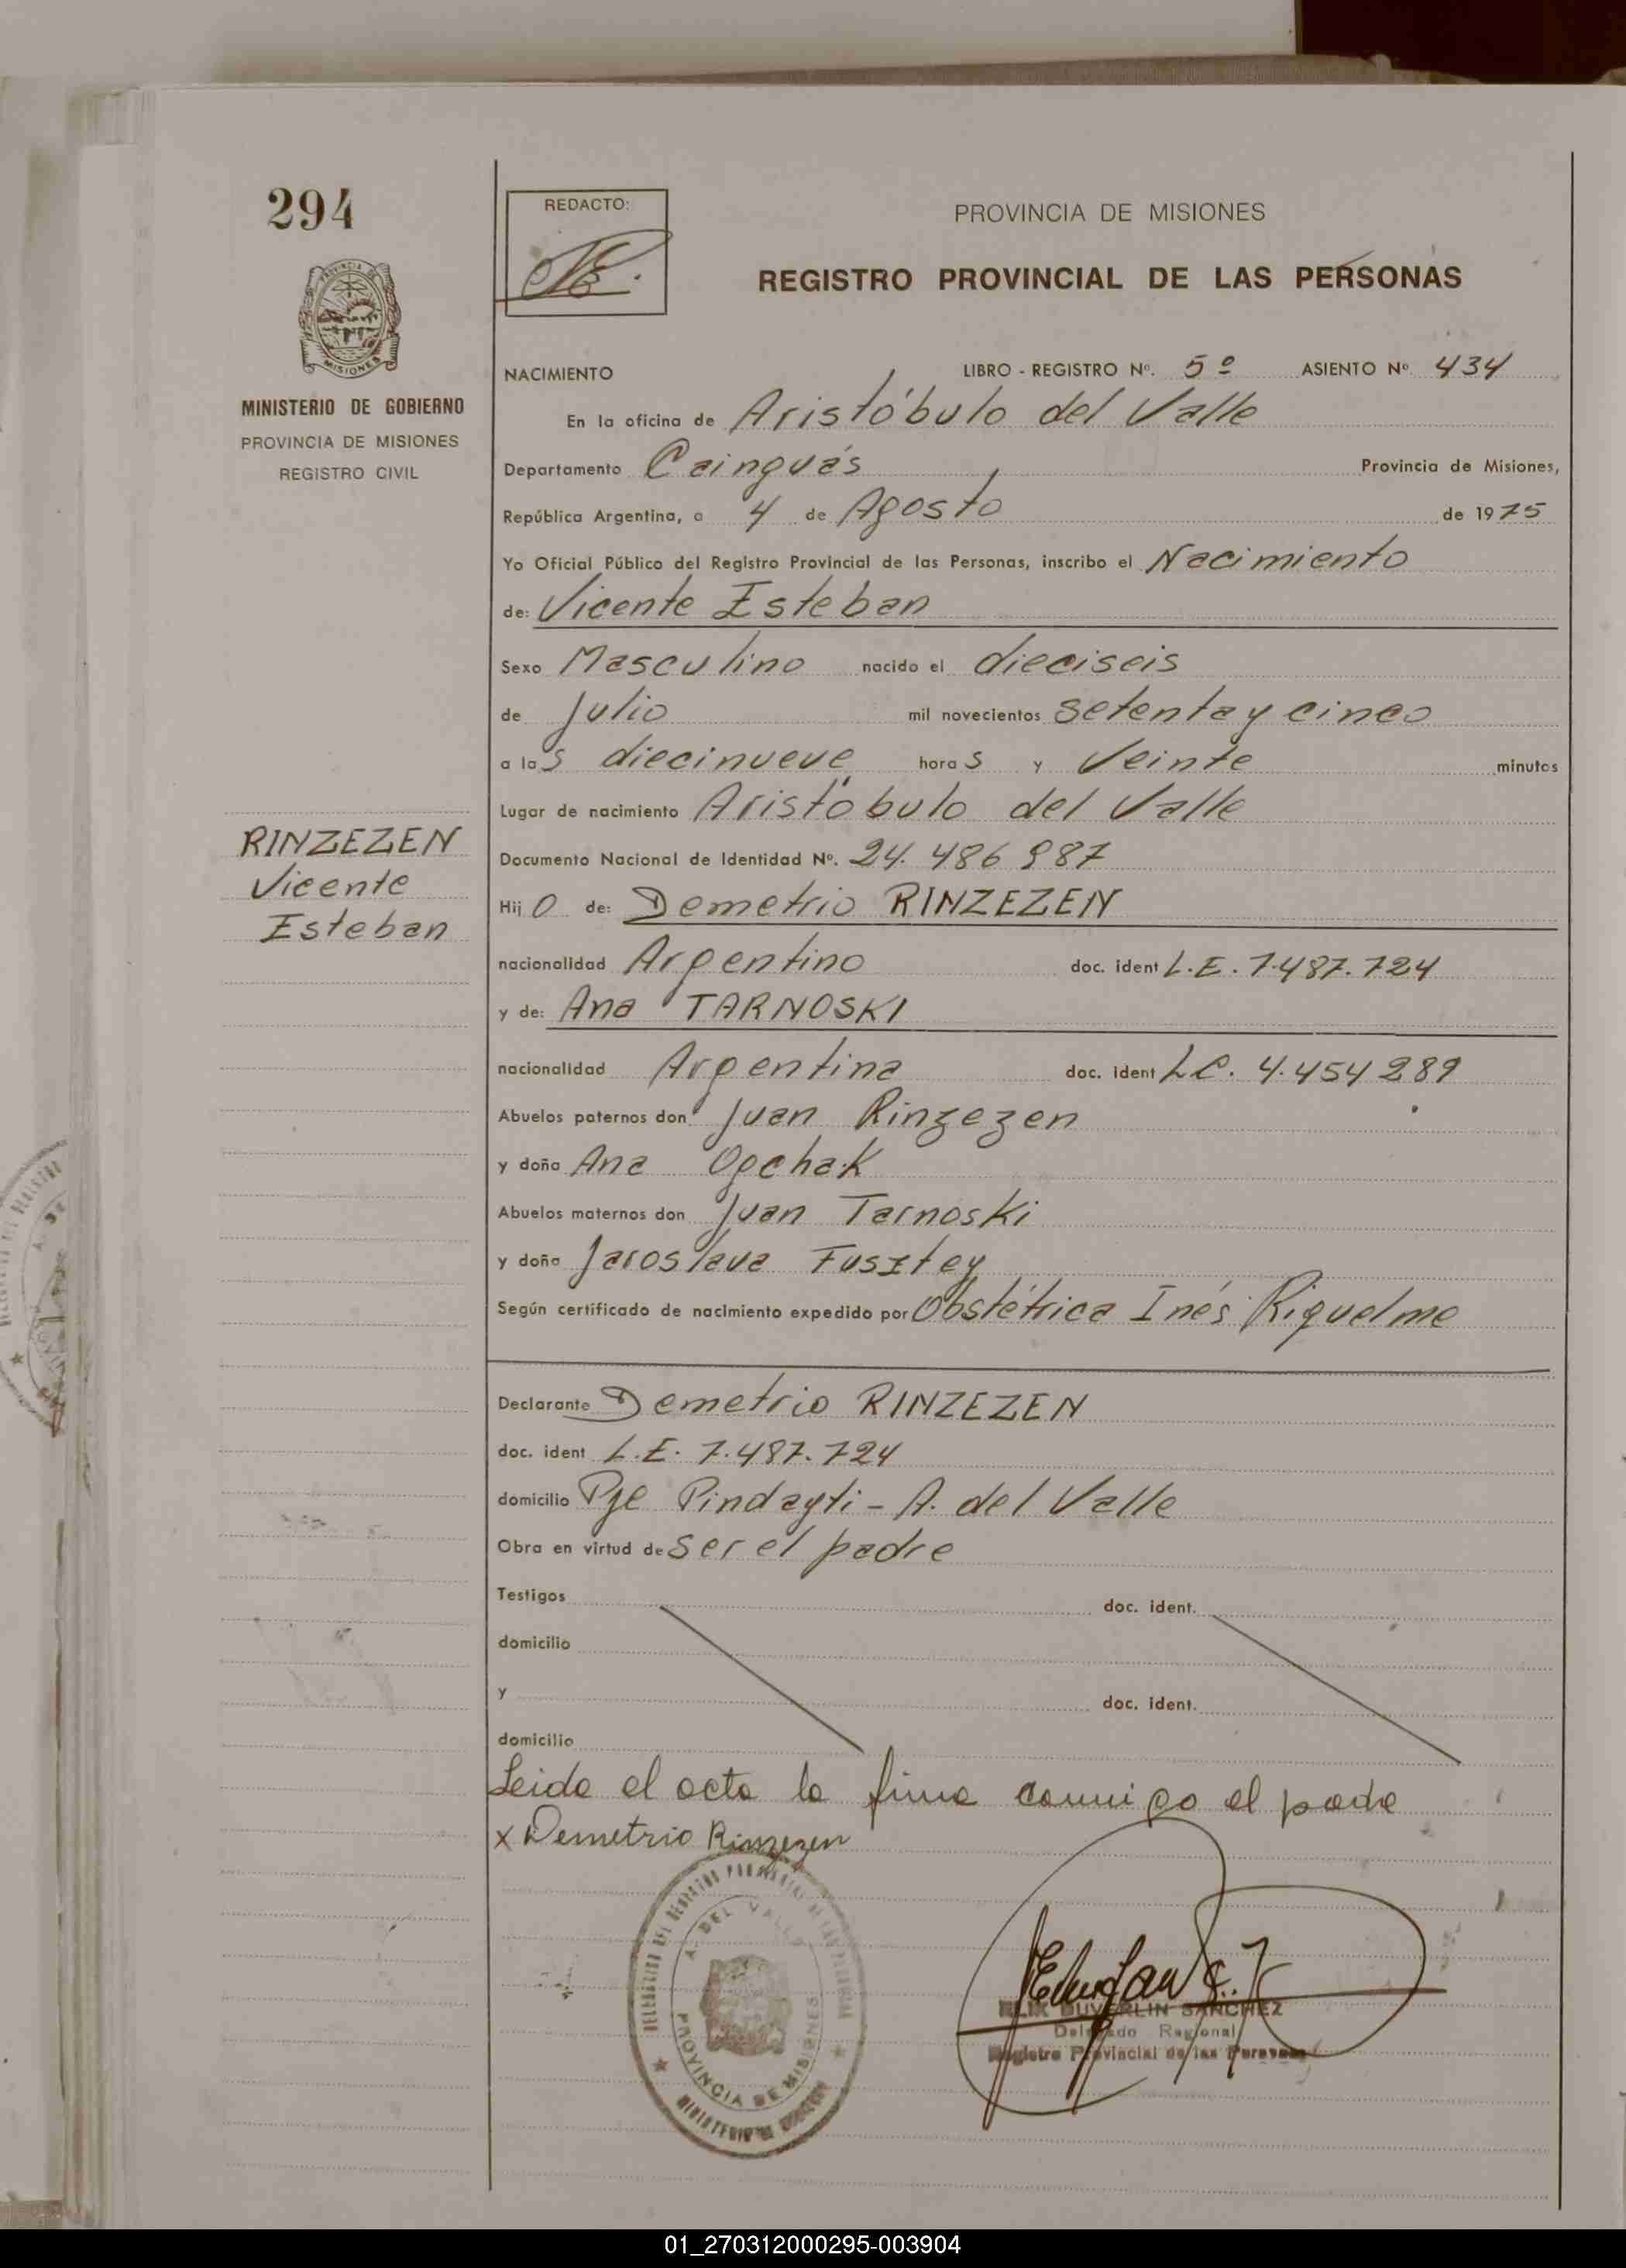 294
REDACTO:
PROVINCIA DE MISIONES
REGISTRO PROVINCIAL DE LAS PERSONAS
PROVINCIA DE
MISIONES
MINISTERIO DE GOBIERNO
PROVINCIA DE MISIONES
REGISTRO CIVIL
NACIMIENTO LIBRO - REGISTRO Nº. 5º ASIENTO Nº 434
En la oficina de Aristóbulo del Valle
Departamento Cainguás Provincia de Misiones,
República Argentina, a 4 de Agosto de 1975
Yo Oficial Público del Registro Provincial de las Personas, inscribo el Nacimiento
de: Vicente Esteban
Sexo Masculino nacido el dieciseis
de Julio mil novecientos setenta y cinco
a las diecinueve horas y Veinte minutos
Lugar de nacimiento Aristóbulo del Valle
RINZEZEN
Vicente
Esteban
Documento Nacional de Identidad Nº. 24.486987
Hijo de: Demetrio RINZEZEN
nacionalidad Argentino doc. ident L.E. 7.487.724
y de: Ana TARNOSKI
nacionalidad Argentina doc. ident L.C. 4.454289
Abuelos paternos don Juan Rinzezen
y doña Ana Ogchak
Abuelos maternos don Juan Tarnoski
y doña Jaroslava Fusztey
Según certificado de nacimiento expedido por Obstétrica Inés Riquelme
Declarante Demetrio RINZEZEN
doc. ident L.E. 7.487.724
domicilio Pje Pindayti - A. del Valle
Obra en virtud de ser el padre
Testigos doc. ident.
domicilio
y doc. ident.
domicilio
Leida el acta la firma conmigo el padre
x Demetrio Rinzezen
DELEGACION DEL REGISTRO PROVINCIAL DE LAS PERSONAS
A. DEL VALLE
PROVINCIA DE MISIONES
MINISTERIO DE GOBIERNO
DUVERLIN SANCHEZ
Delegado Regional
Registro Provincial de las Personas
01_270312000295-003904